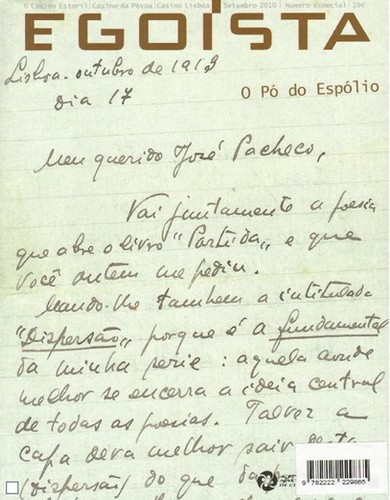 © Casino Estoril | Casino da Póvoa | Casino Lisboa | Setembro 2010 | Número Especial | 10€
EGOÍSTA
Lisboa - outubro de 1913
Dia 17
O Pó do Espólio
Meu querido José Pacheco,
Vai juntamente a poesia
que abre o livro "Partida", e que
Você ontem me pediu.
Mando-lhe tambem a intitulada
"Dispersão", porque é a fundamental
da minha serie: aquela aonde
melhor se encerra a ideia central
de todas as poesias. Talvez a
capa deva melhor sair desta
(Dispersão) do que da
9 782222 229865